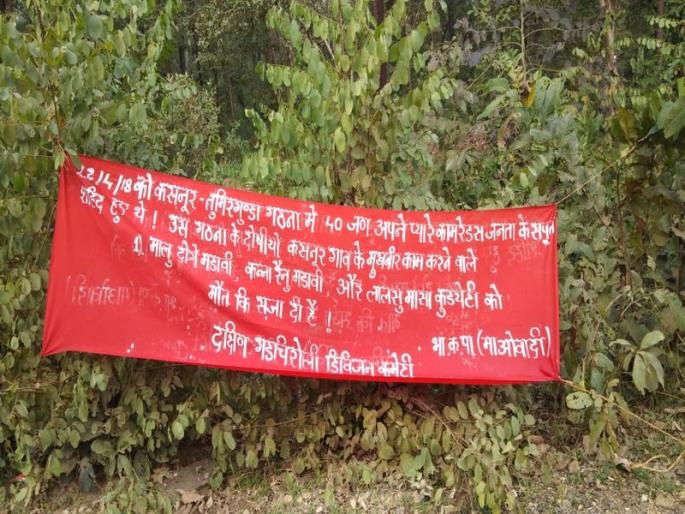 22/4/18 को कसनूर - तुमिरगुण्डा गठना मे 40 जण अपने प्यारे कामरेडस जनता के सपूत
शहिद हुए थे ! उस गठना के दोषीयो कसनूर गाव के मुखबीर काम करने वाले
1. मालु दोगे मडावी, कन्ना रैनु मडावी, और लालसु मासा कुडयेटी को
मौत कि सजा दी हैं !
दक्षिण गडचिरोली डिविजन कमेटी
भा क पा (माओवादी)